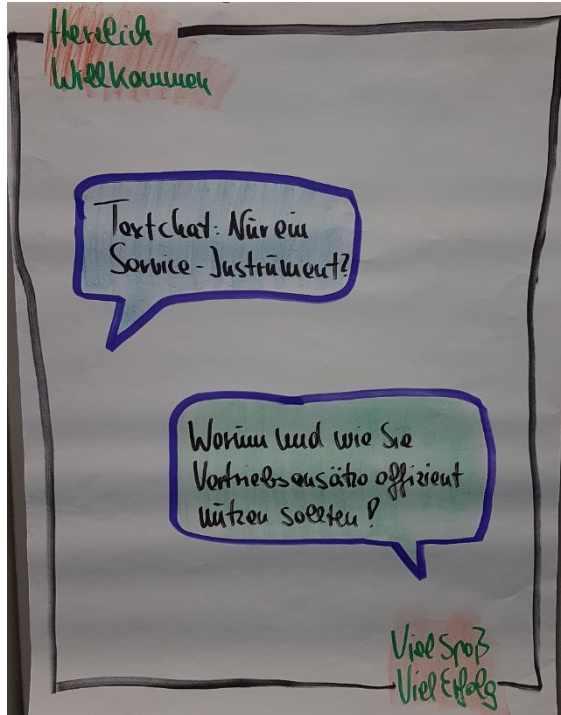 Herzlich
Willkommen
Textchat: Nur ein
Service-Instrument?
Warum und wie Sie
Vertriebsansätze effizient
nutzen sollten!
Viel Spaß
Viel Erfolg